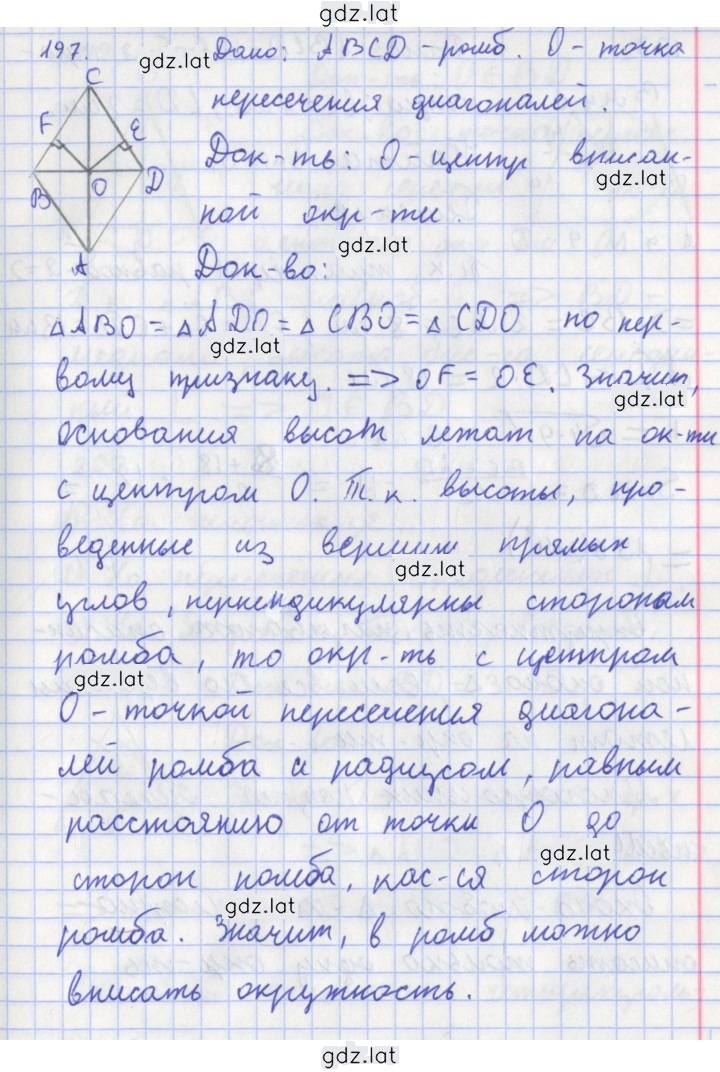 gdz.lat
197.
gdz.lat
Дано: ABCD - ромб. O - точка
пересечения диагоналей.
Док-ть: O - центр вписан-
gdz.lat
ной окр-ти.
gdz.lat
Док-во:
C
F
E
B
O
D
A
△ABO = △ADO = △CBO = △CDO по пер-
gdz.lat
вому признаку. => OF = OE. Значит,
gdz.lat
основания высот лежат на ок-ти
с центром O. Т.к. высоты, про-
веденные из вершин прямых
gdz.lat
углов, перпендикулярны сторонам
ромба, то окр-ть с центром
gdz.lat
O - точкой пересечения диагона-
лей ромба и радиусом, равным
расстоянию от точки O до
gdz.lat
сторон ромба, кас-ся сторон
gdz.lat
ромба. Значит, в ромб можно
вписать окружность.
gdz.lat